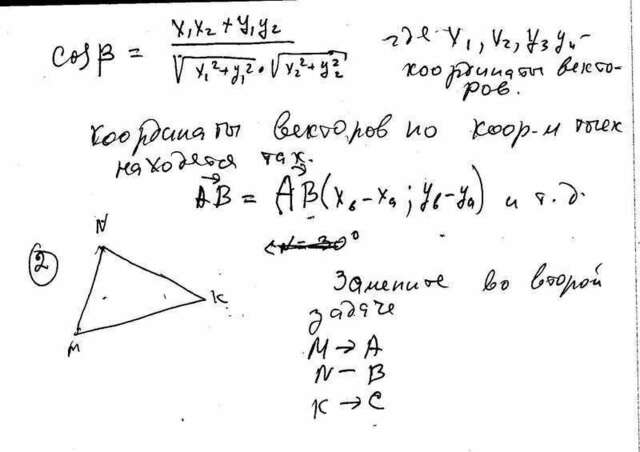 cos β = x₁x₂ + y₁y₂ / √x₁²+y₁² · √x₂²+y₂² где x₁, x₂, y₃ y₄ –
координаты векто-
ров.
координаты векторов по коор-м точек
находятся так.
AB = AB(x_в – x_а ; y_в – y_а) и т.д.
N
2
K
M
Замените во второй
задаче
M → A
N – B
K → C